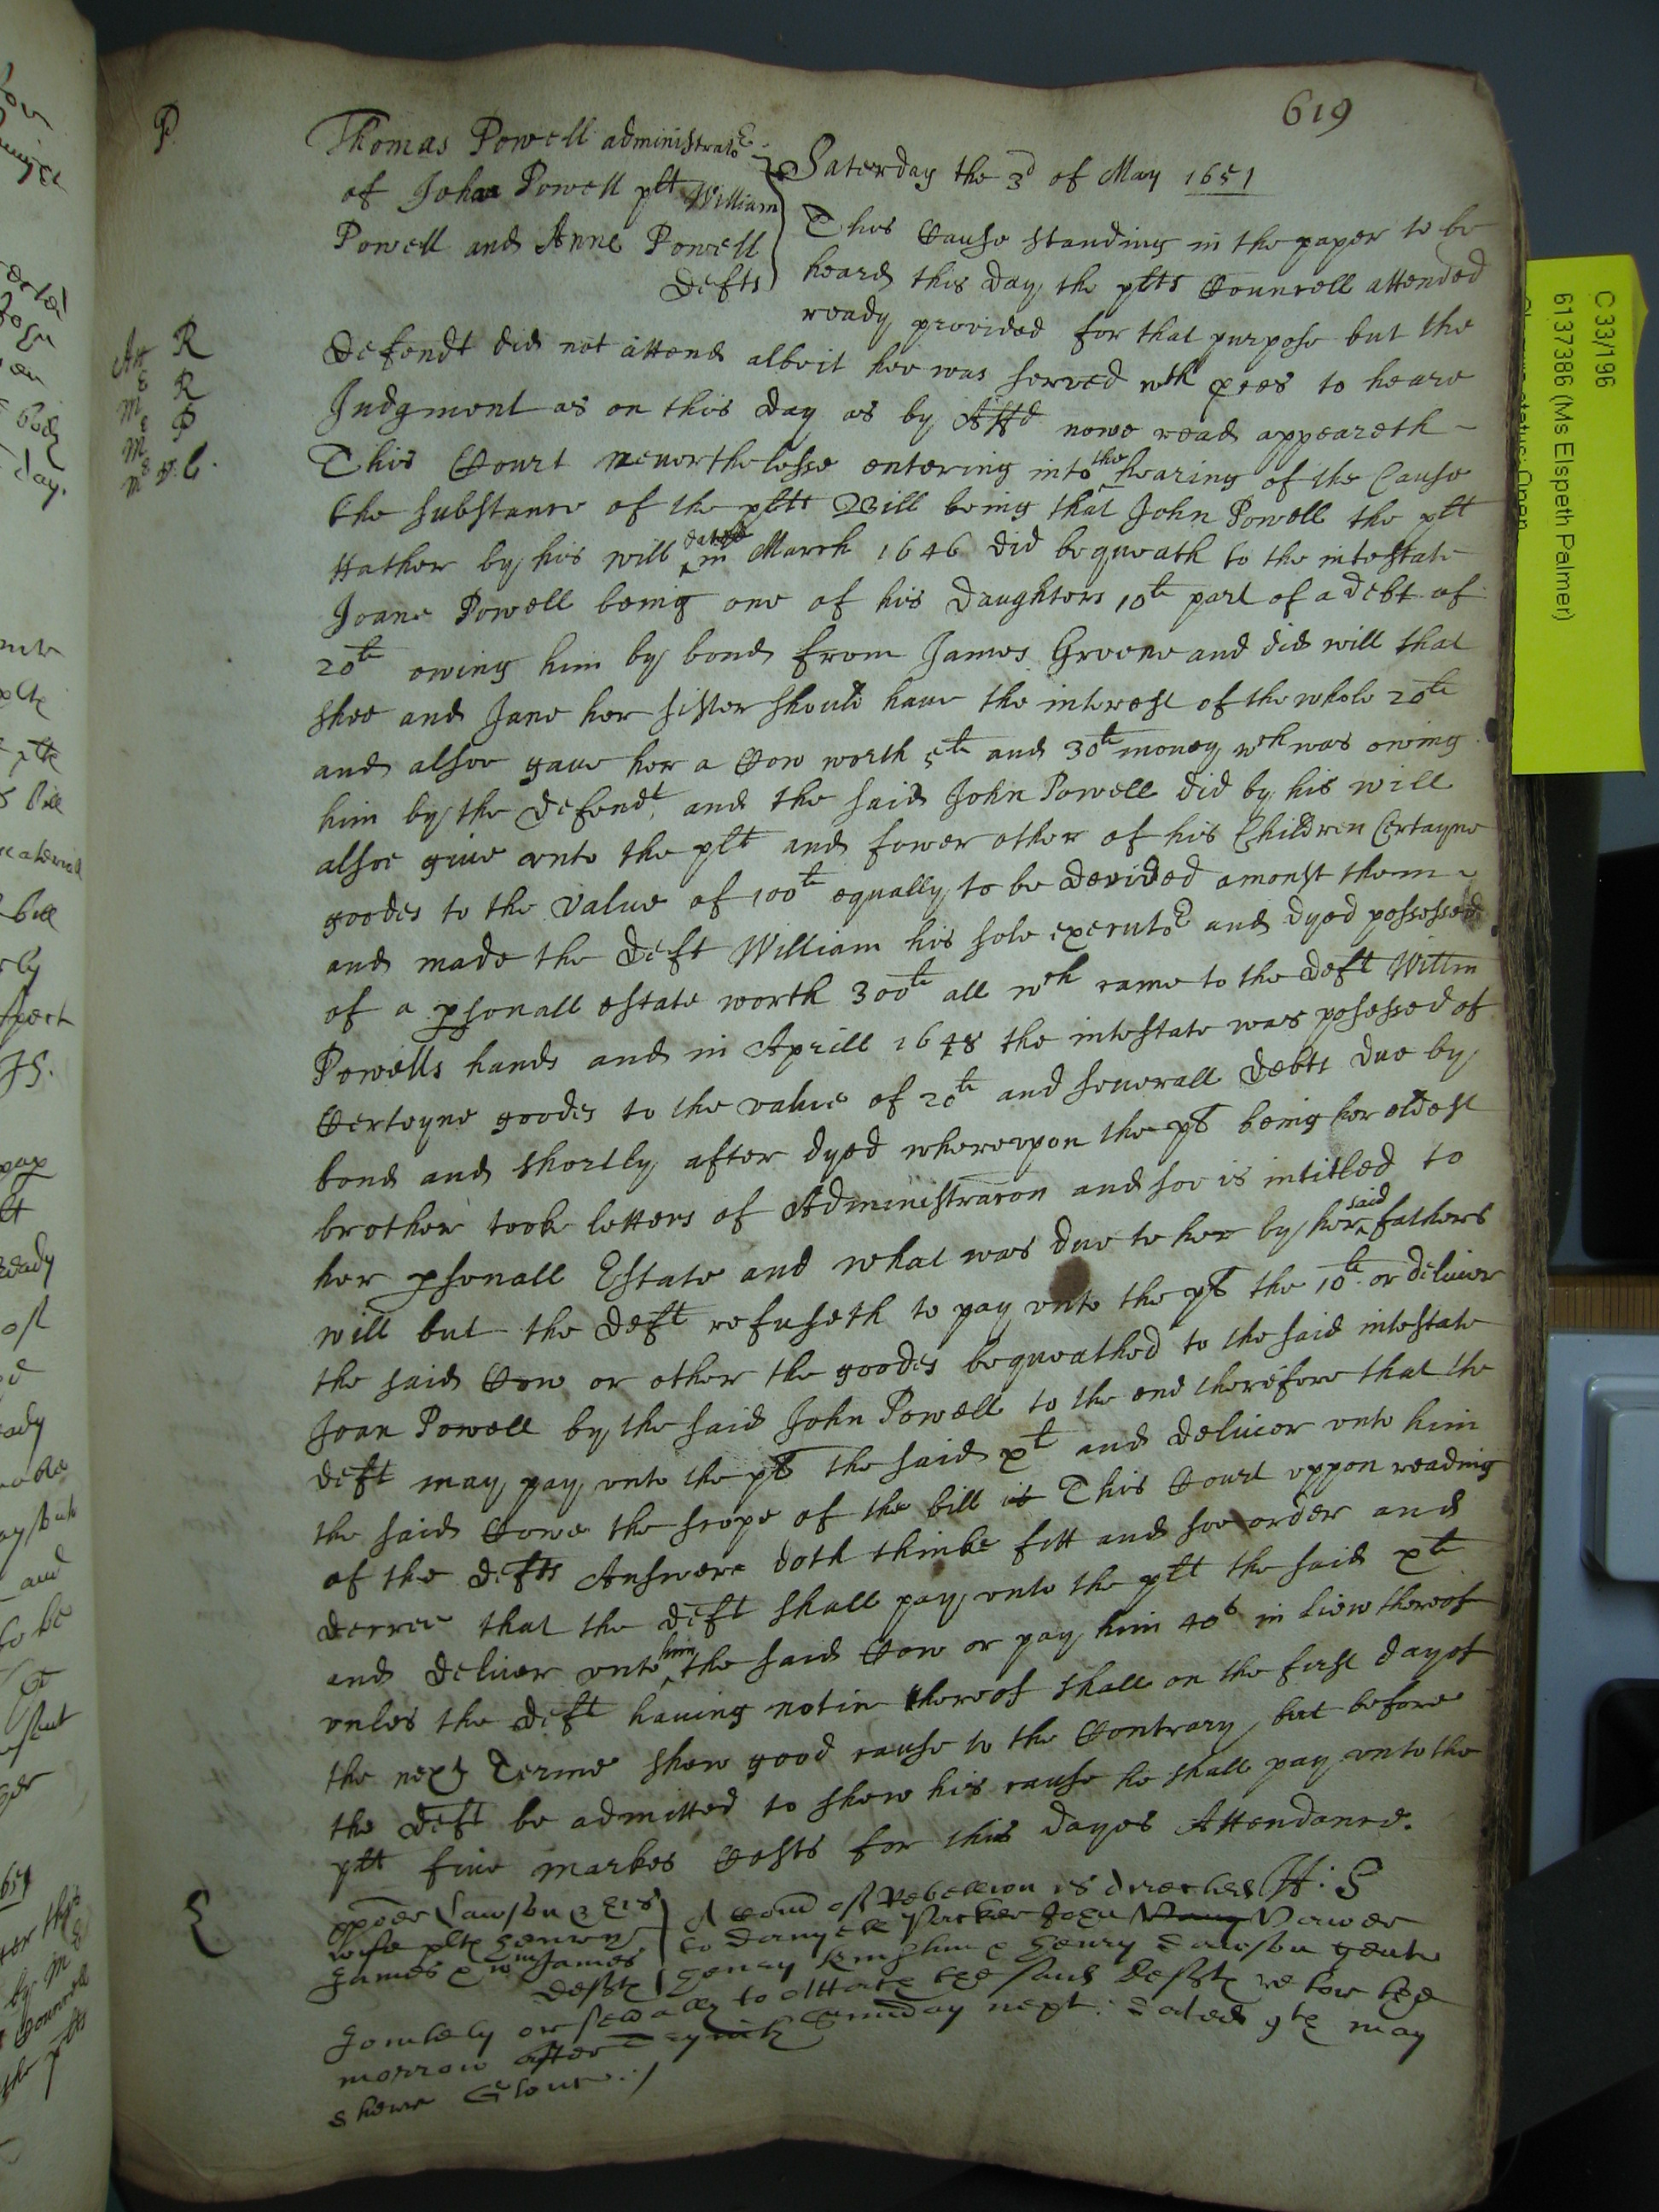 619
P
Thomas Powell administrato:r
of Johan Powell plt William
Powell and Anne Powell
Defts
Saterday the 3d of May 1651
This Cause standing in the paper to be
heard this day, the plts Councell attended
ready provided for that purpose but the
Defendt did not attend albeit hee was served wth pces to heare
Judgment as on this day as by Affd nowe read appeareth
This Court neuerthelesse entering into the hearing of the Cause
the substance of the plts Bill being that John Powell the plt
ffather by his will dated in March 1646 did bequeath to the intestate
Joane Powell being one of his Daughters 10li part of a debt of
20li owing him by bond from James Greene and did will that
shee and Jane her sister should haue the interest of the whole 20li
and alsoe gaue her a Cow worth 5li and 30li money wch was owing
him by the Defendt, and the said John Powell did by his will
alsoe giue vnto the plt and fower other of his Children Certayne
goodes to the value of 100li equally to be devided amonst them
and made the Deft William his sole executo:r and dyed possessed
of a psonall estate worth 300li all wch came to the Deft Willm
Powells hands and in Aprill 1648 the intestate was posessed of
Certeyne goodes to the value of 20li and seuerall Debts due by
bond and shortly after dyed wherevpon the plt being her eldest
brother tooke letters of Administracon and soe is intitled to
her psonall Estate and what was due to her by her said fathers
will but the Deft refuseth to pay vnto the plt the 10li or deliuer
the said Cow or other the goodes bequeathed to the said intestate
Joan Powell by the said John Powell to the end therefore that the
Deft may pay vnto the plt the said xli and deliuer vnto him
the said Cowe the scope of the bill is This Court vppon reading
of the Defts Answere doth thinke fitt and soe order and
decree that the Deft shall pay vnto the plt the said xli
and deliuer vnto him the said Cow or pay him 40s in liew thereof
vnles the Deft hauing notice thereof shall on the first day of
the next Terme shew good cause to the Contrary, but before
the Deft be admitted to shew his cause he shall pay vnto the
plt fiue markes Costs for this dayes Attendance.
H: S
Lawson & his
wife plts Henry
James & Wm James
Defts
A Com of Rebellion is directed
to Danyell Parker John Dawes
Henry & Henry Dawson gent
Joyntely or seually to Attach the said Defts re bow the
morrow after Trynity Sunday next. Dated 9th may
Glouc ./
C 33/196
6137386 (Ms Elspeth Palmer)